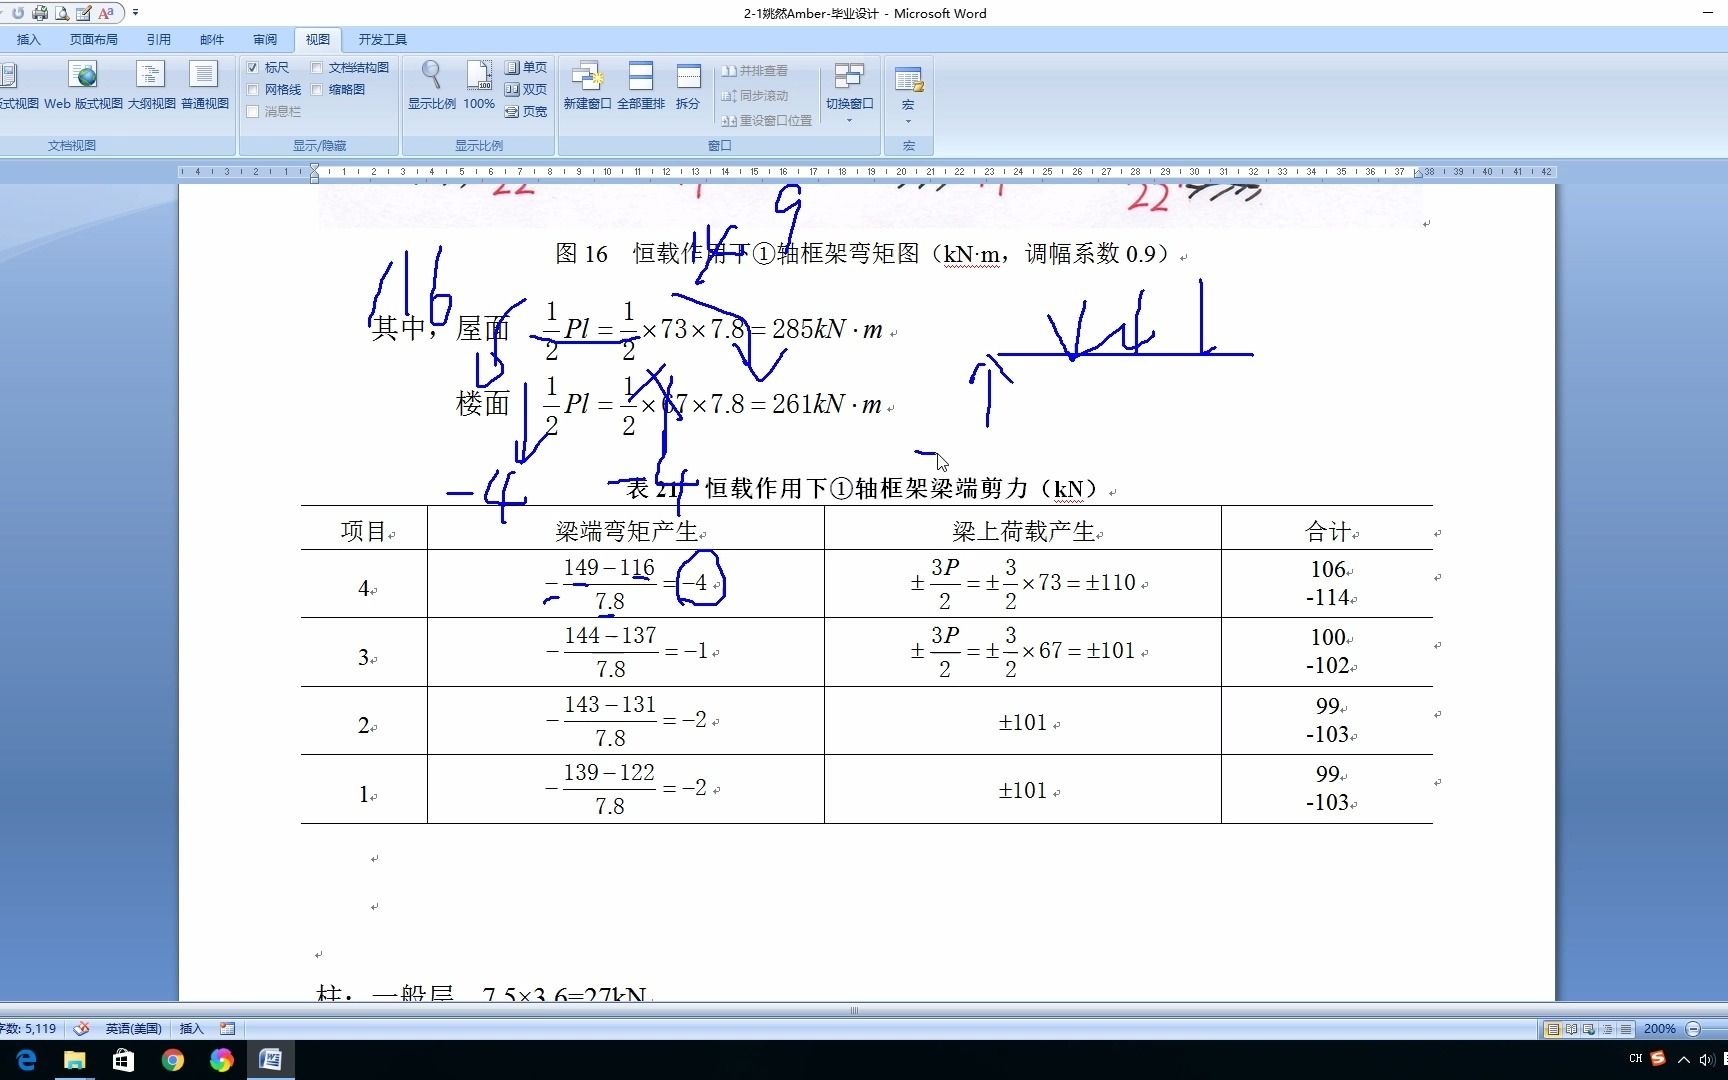 2-1姚然Amber-毕业设计 - Microsoft Word
插入 页面布局 引用 邮件 审阅 视图 开发工具
式视图 Web 版式视图 大纲视图 普通视图
文档视图
标尺 文档结构图
网格线 缩略图
消息栏
显示/隐藏
显示比例 100% 单页 双页 页宽
显示比例
新建窗口 全部重排 拆分 并排查看 同步滚动 重设窗口位置 切换窗口
窗口
宏
宏
4 3 2 1 1 2 3 4 5 6 7 8 9 10 11 12 13 14 15 16 17 18 19 20 21 22 23 24 25 26 27 28 29 30 31 32 33 34 35 36 37 38 39 40 41 42
22 22
9
116
图 16 恒载作用下①轴框架弯矩图（kN·m，调幅系数 0.9）
其中，屋面 1/2 Pl = 1/2 ×73×7.8 = 285kN·m
楼面 1/2 Pl = 1/2 ×67×7.8 = 261kN·m
-4 -4
表 21 恒载作用下①轴框架梁端剪力（kN）
项目 梁端弯矩产生 梁上荷载产生 合计
4 −(149−116)/7.8 = −4 ±3P/2 = ±3/2×73 = ±110 106
-114
3 −(144−137)/7.8 = −1 ±3P/2 = ±3/2×67 = ±101 100
-102
2 −(143−131)/7.8 = −2 ±101 99
-103
1 −(139−122)/7.8 = −2 ±101 99
-103
柱：一般层 7.5×3.6=27kN
字数: 5,119 英语(美国) 插入 200%
CH